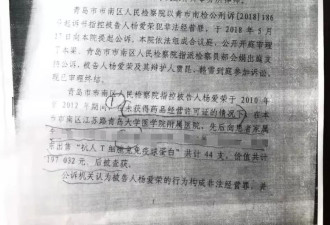 青岛市市南区人民检察院以青市南检公刑诉[2018]186
号起诉书指控被告人杨爱荣犯非法经营罪，于2018年5月
7日向本院提起公诉。本院依法组成合议庭，公开开庭审理了本
案。青岛市市南区人民检察院指派检察员
出庭支持公诉，被告人杨爱荣及其辩护人贾昆、韩雪到庭参加诉讼。
现已审理终结。
青岛市市南区人民检察院指控被告人杨爱荣于2010年
至2012年期间，在未获得药品经营许可证的情况下，在本
市市南区江苏路青岛大学医学院附属医院，先后向患者家属
出售“抗人T细胞兔免疫球蛋白”共计44支，价值共计
197 692元。后被查获。
公诉机关认为被告人杨爱荣的行为构成非法经营罪，并